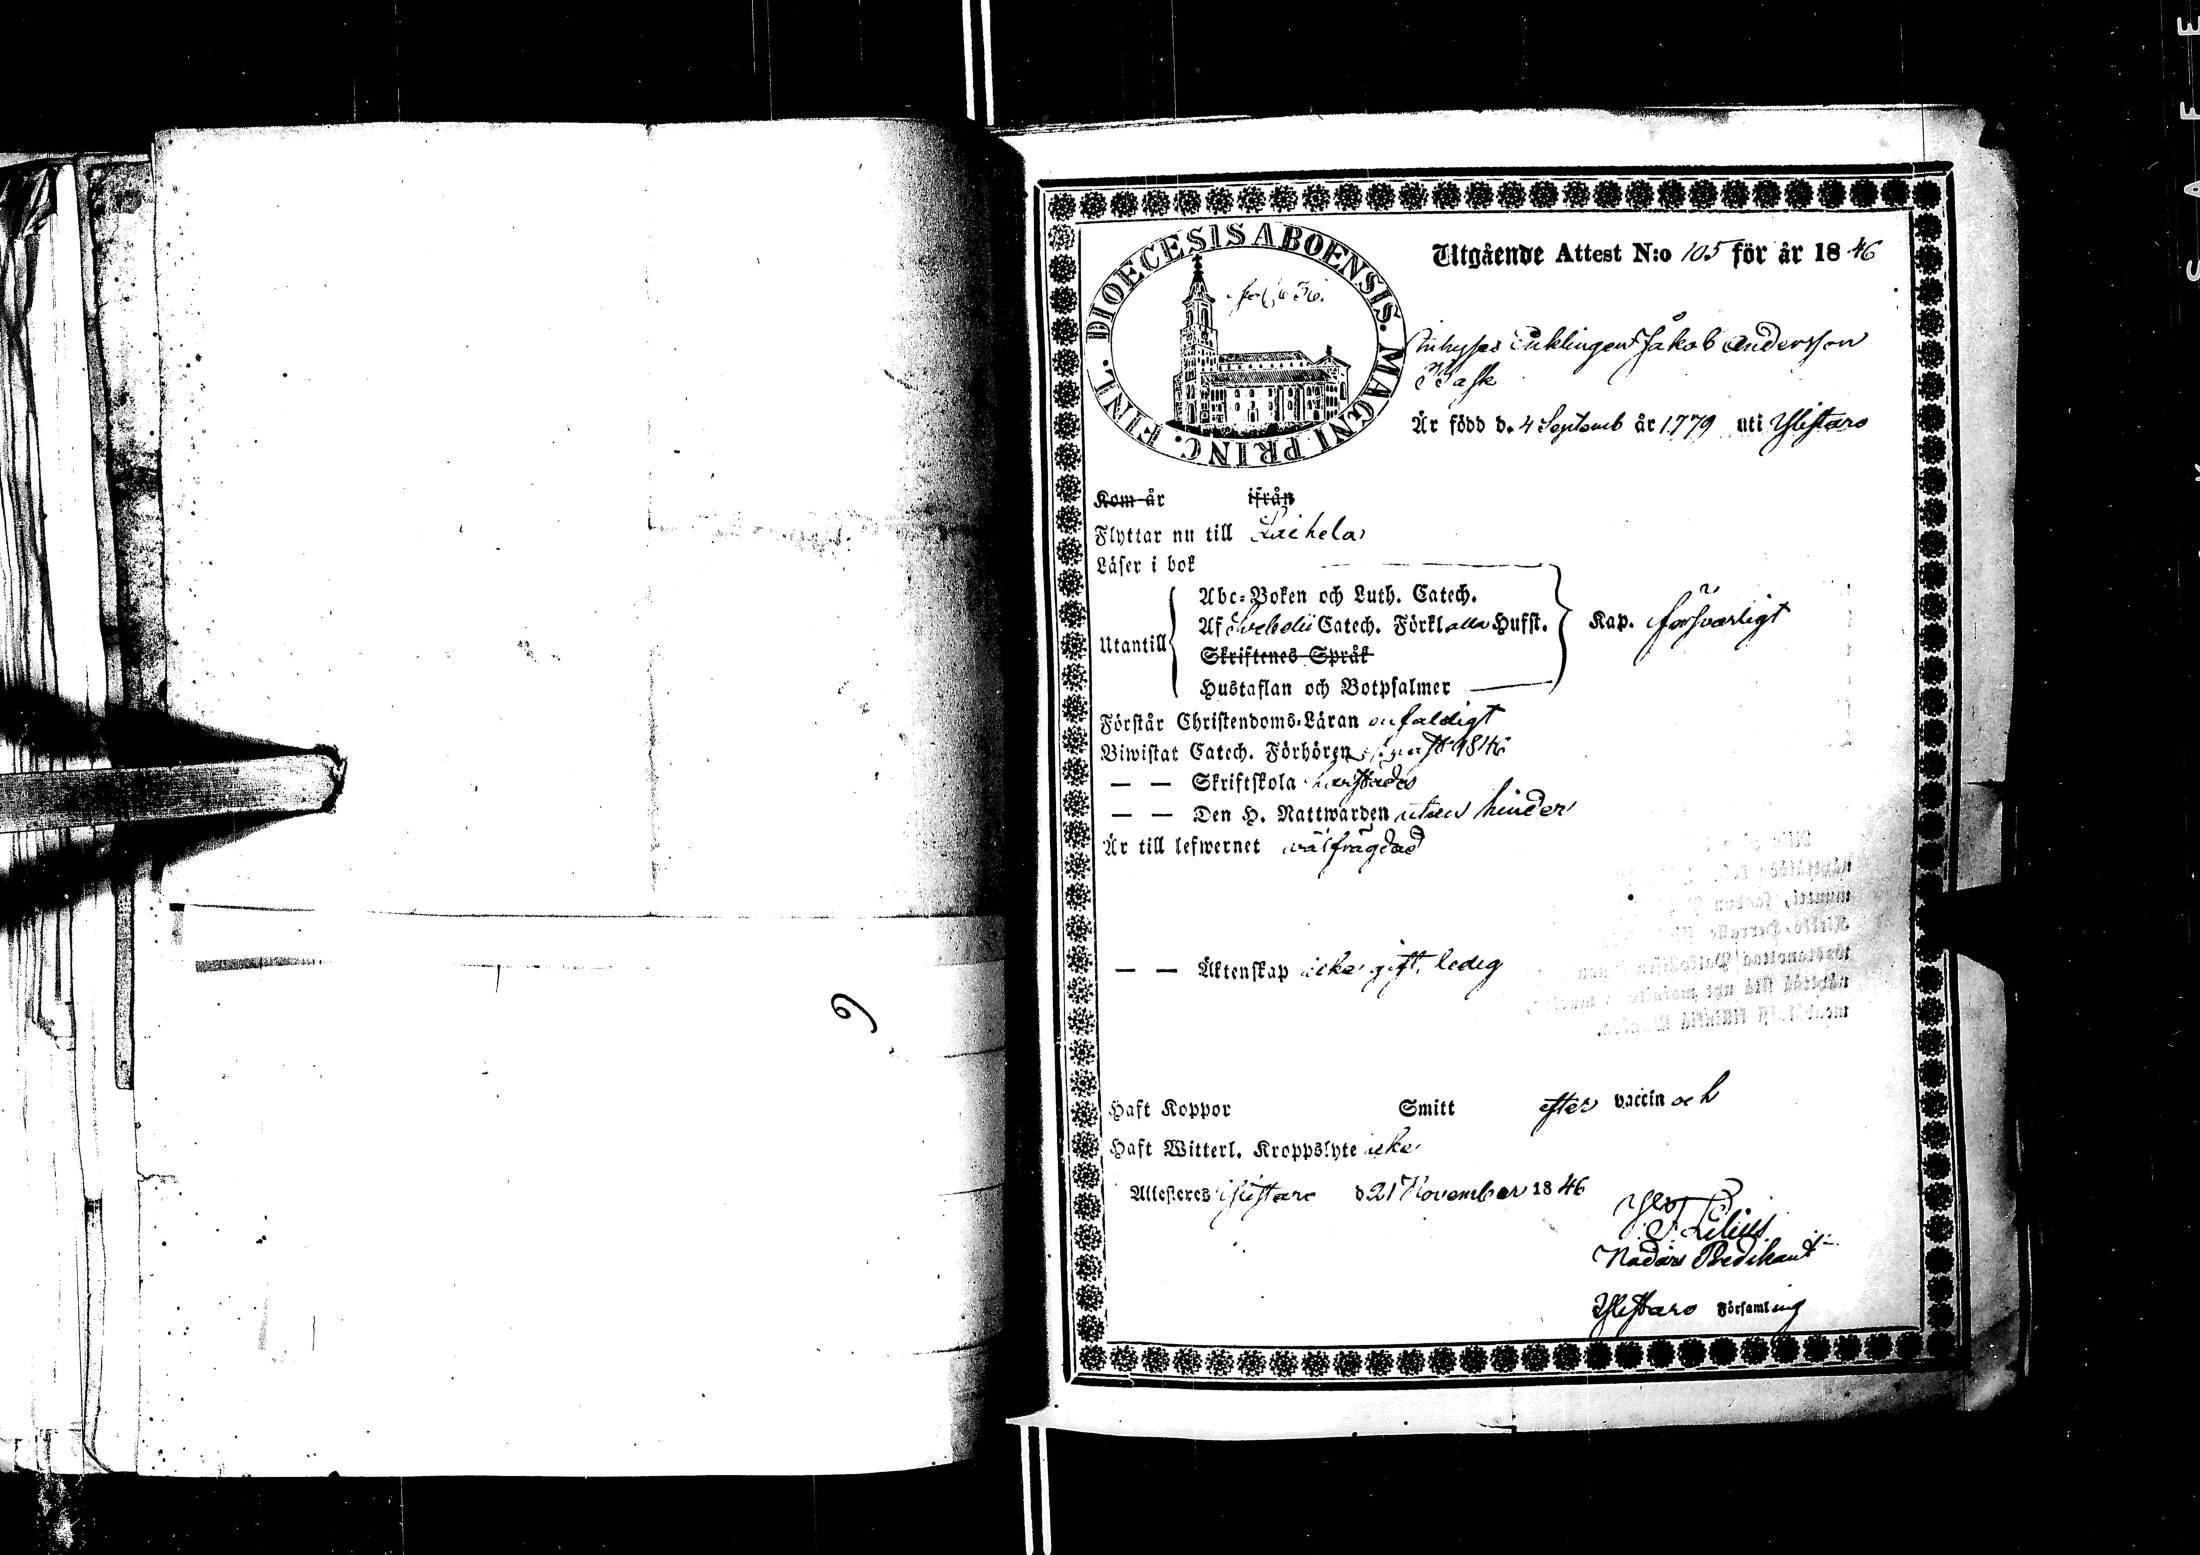 DIOECESIS ABOENSIS. MAGNI PRINC. FINL.
Utgående Attest N:o 105 för år 1846
Inhyses Enklingen Jakob Andersson
Kask
Är född d. 4 Septemb år 1779 uti Ylistaro
Kom år ifrån
Flyttar nu till Laihela
Läser i bok
Abc-Boken och Luth. Catech.
Af Svebelii Catech. Förkl alla Husst. Kap. försvarligt
Utantill
Skriftenes Språk
Hustaflan och Botpsalmer
Förstår Christendoms-Läran enfaldigt
Biwistat Catech. Förhören 1846
— — Skriftskola
— — Den H. Nattwarden utan hinder
Är till lefwernet välfrägdad
— — Äktenskap icke gift, ledig
Haft Koppor Smitt efter vaccin och
Haft Witterl. Kroppslyte icke
Attesteres Ylistaro d 21 November 1846
Nådårs Predikant
Ylistaro Församling
9